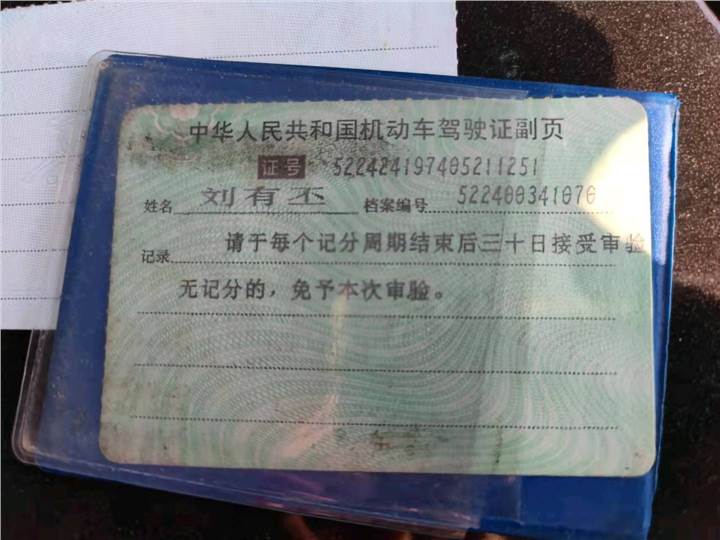 中华人民共和国机动车驾驶证副页
证号 522424197405211251
姓名 刘有丕 档案编号 522400341070
记录 请于每个记分周期结束后三十日接受审验
无记分的，免予本次审验。